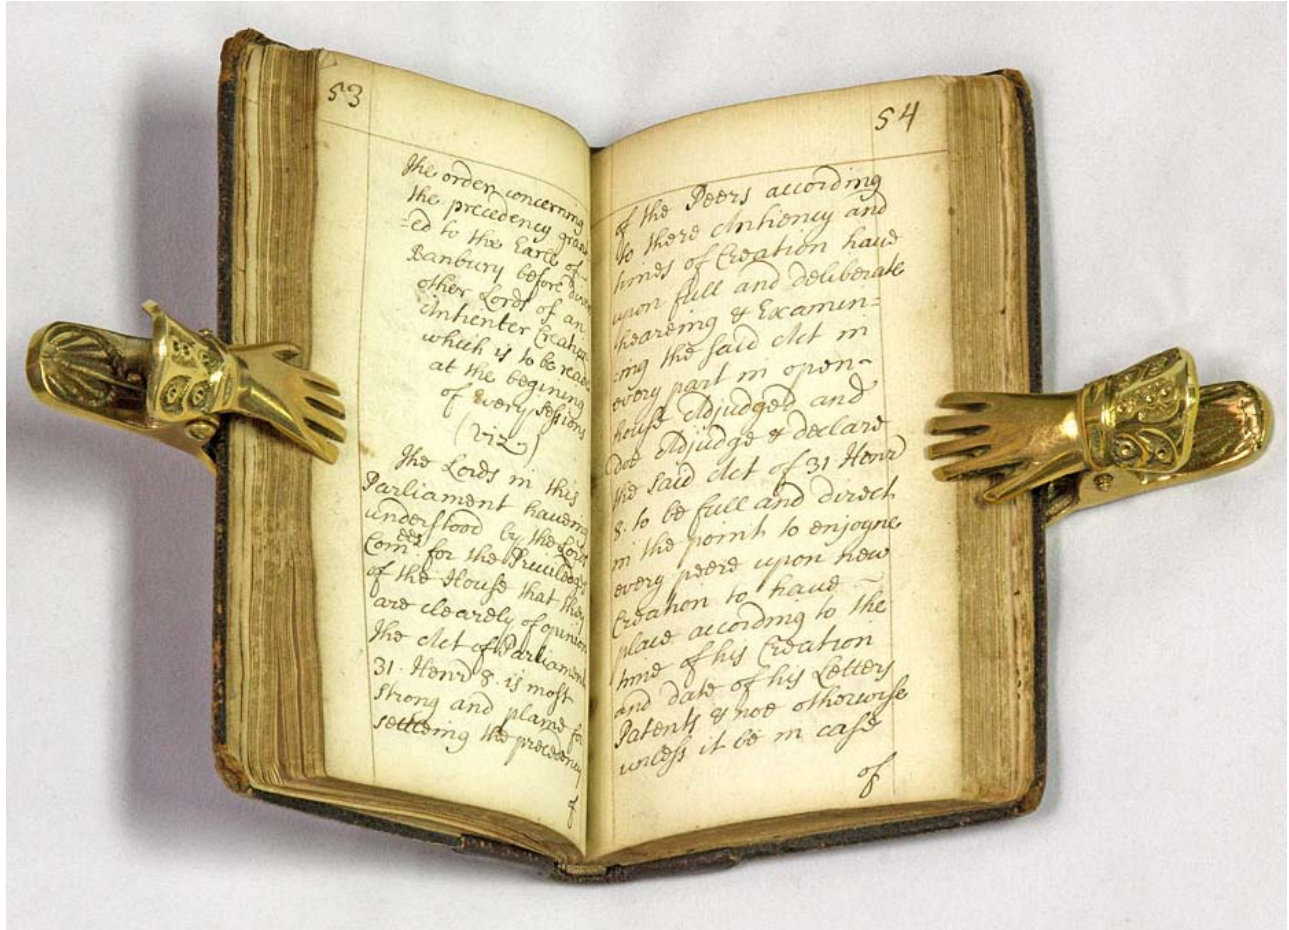 53
The order concerning
the precedency gran
-ed to the Earle of
Banbury before divers
other Lords of an
Antienter Creation
which is to be read
at the begining
of every sessions
(viz)
The Lords in this
Parliament haveing
understood by the Lords
Com^ees for the Priviledges
of the House that they
are clearely of opinion
The Act of Parliament
31 Henr̃ 8. is most
strong and plaine for
setleing the precedency
of
54
of the Peers according
to there Antiency and
times of Creation have
upon full and deliberate
heareing & Examin=
ing the said Act in
every part in open
house Adjudged and
doe Adjudge & declare
the said Act of 31 Henr̃
8. to be full and direct
in the point to enjoyne
every peere upon new
Creation to have
place according to the
time of his Creation
and date of his Letters
Patents & not otherwise
unless it be in case
of